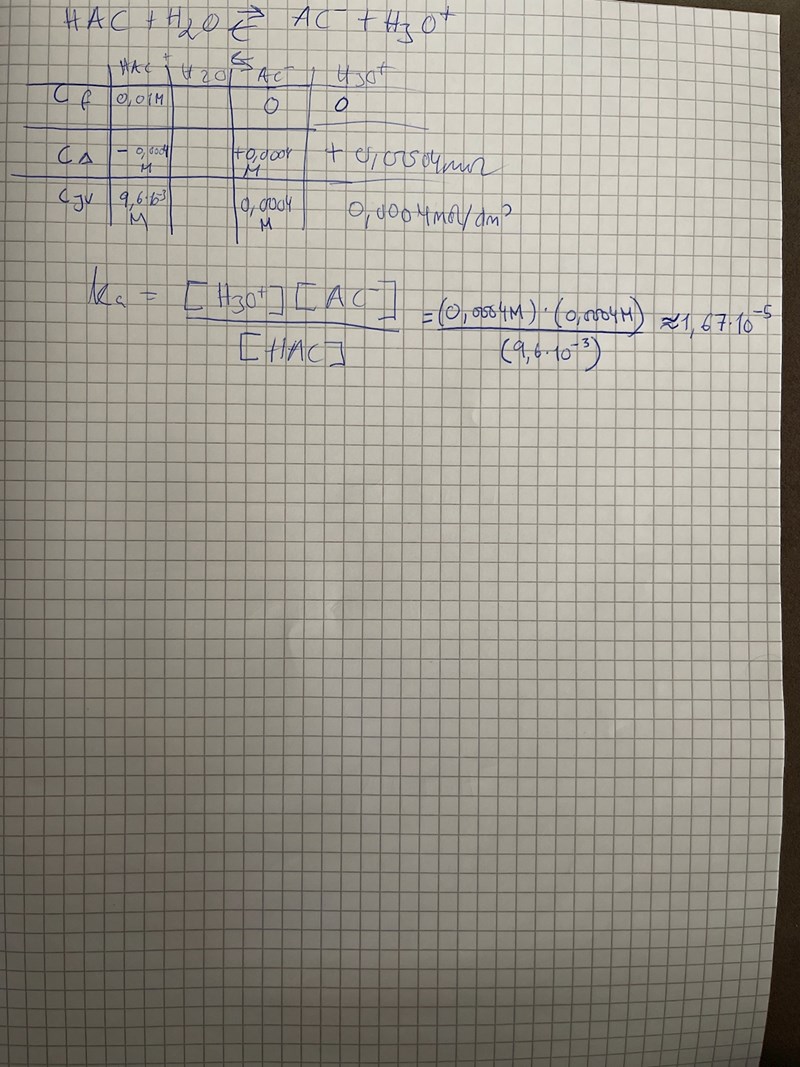 HAC + H2O ⇌ AC⁻ + H3O⁺
HAC H2O AC⁻ H3O⁺
Cf 0,01M 0 0
CΔ - 0,0004 M +0,0004 M +
Cjv 9,6·10⁻³ M 0,0004 M 0,0004mol/dm³
Ka = [H3O⁺][AC⁻] / [HAC] = (0,0004M)·(0,0004M) / (9,6·10⁻³) ≈1,67·10⁻⁵